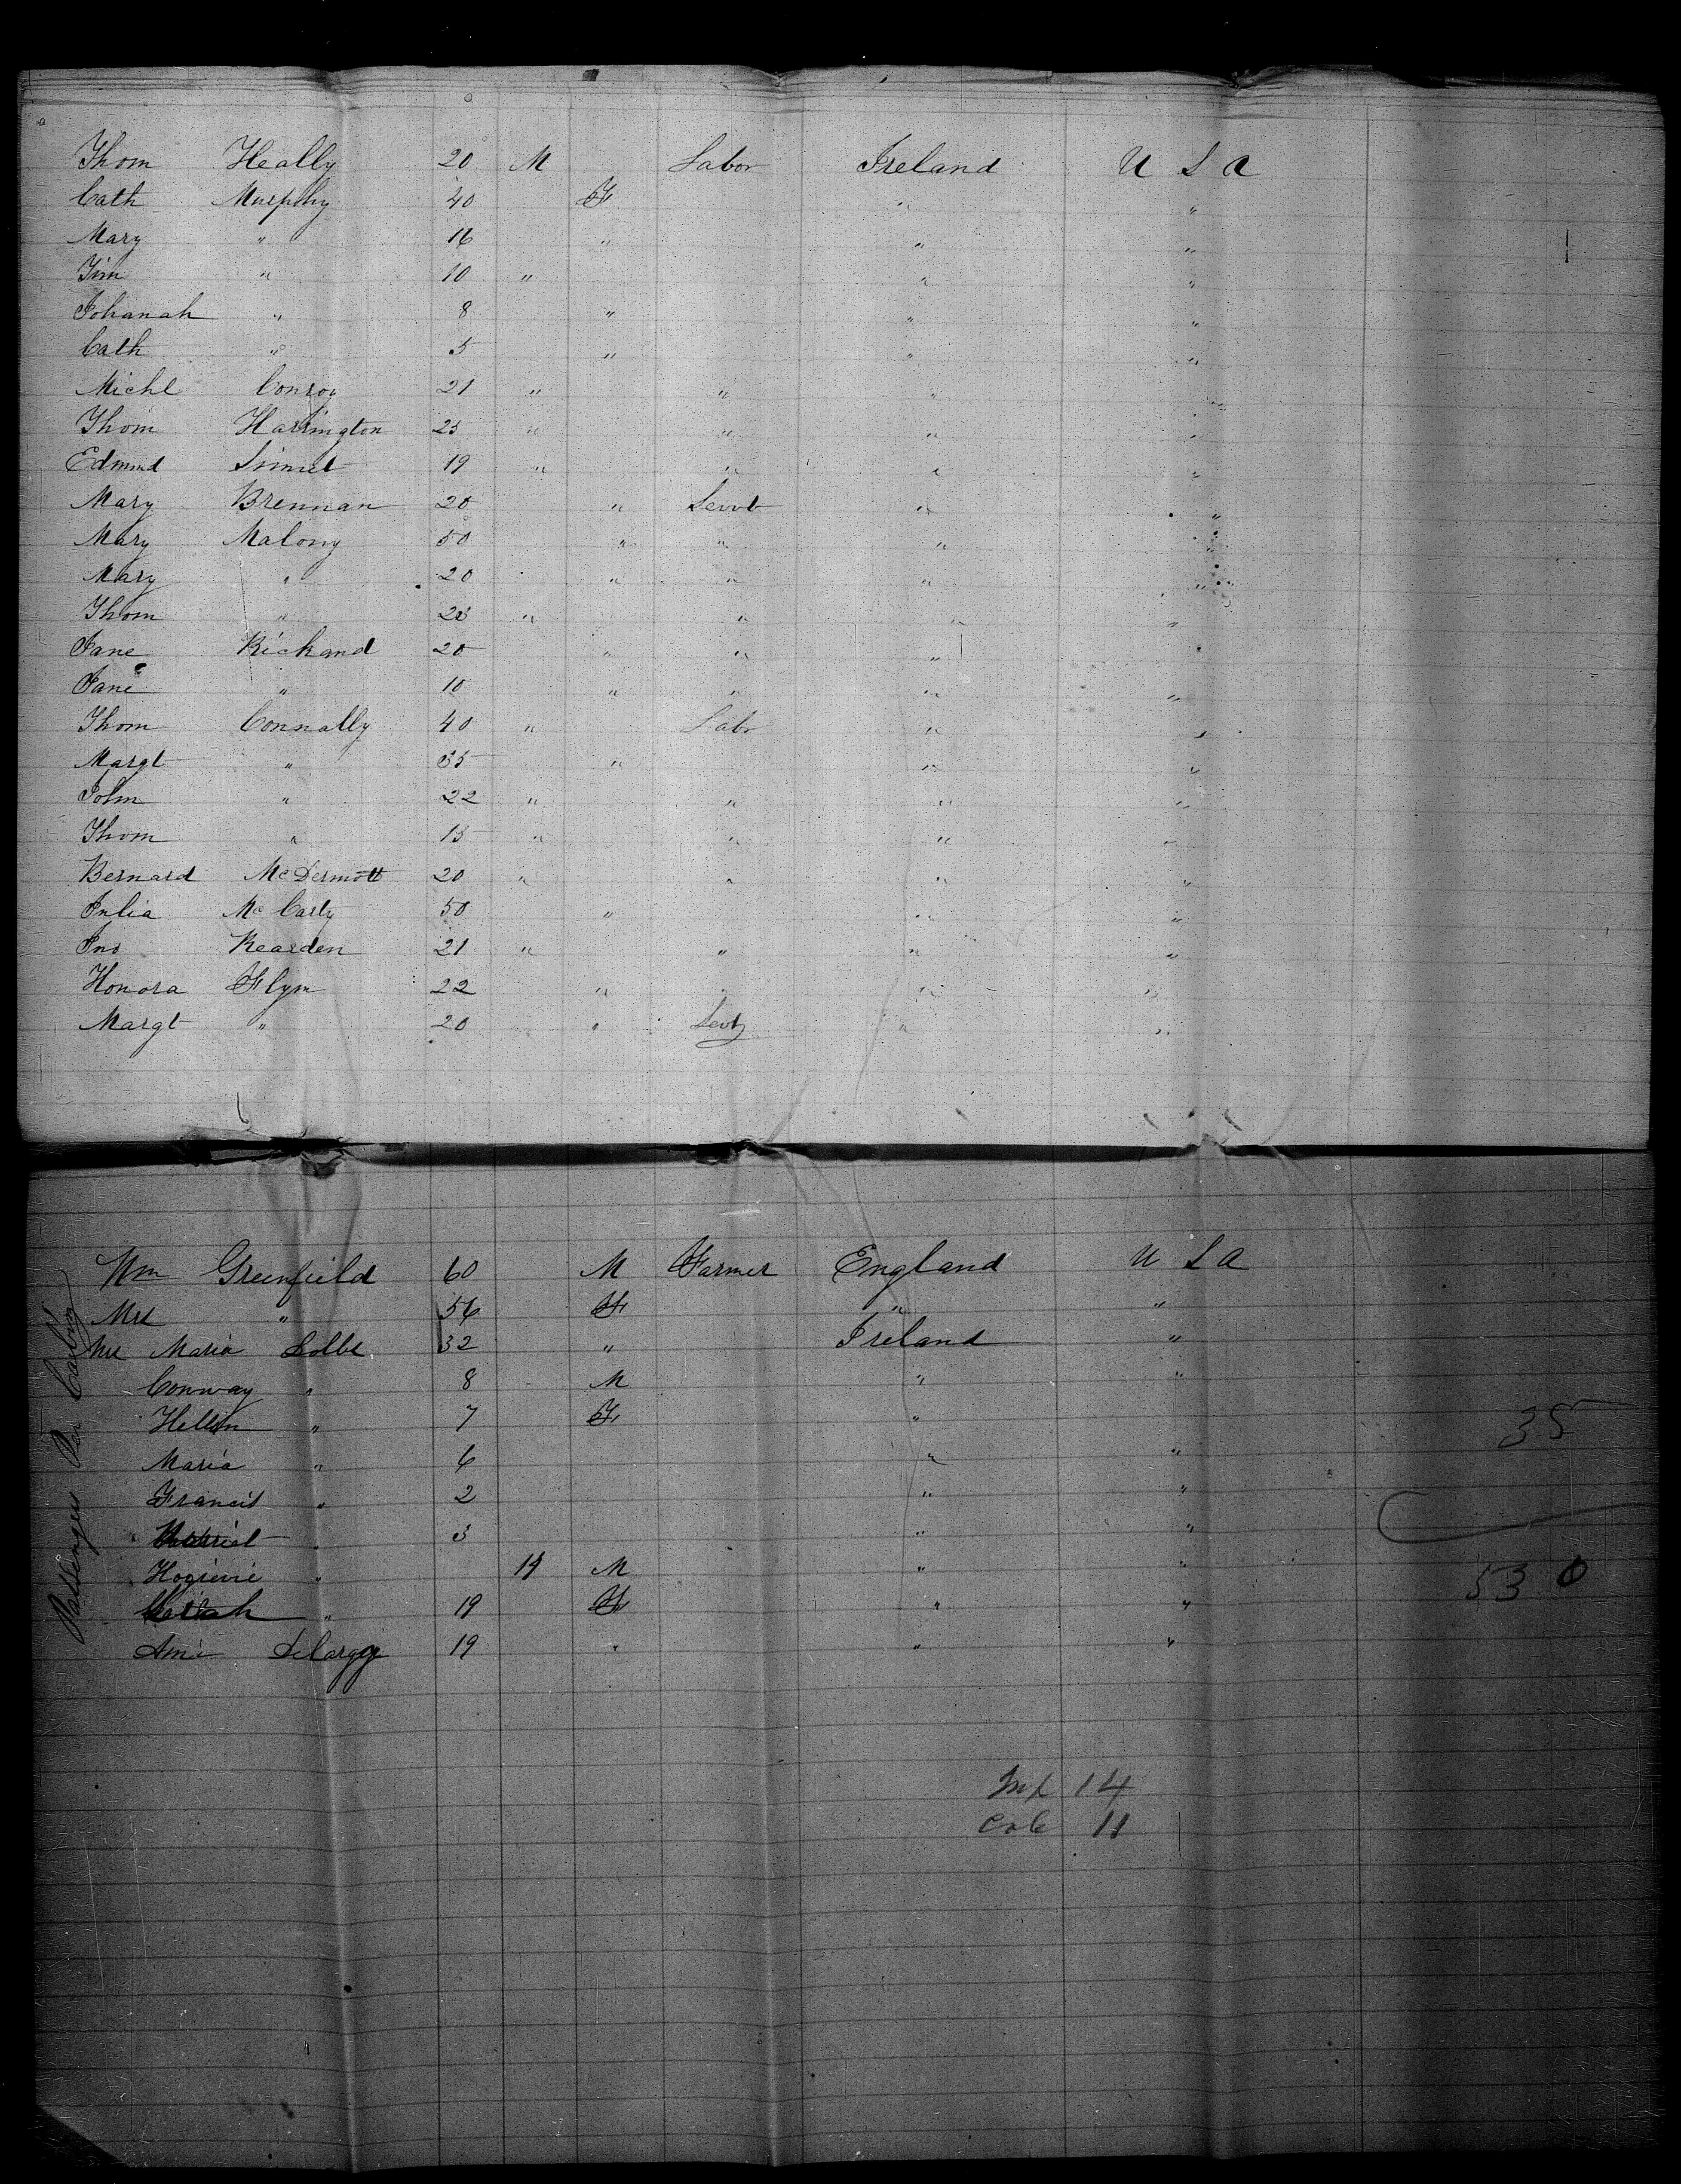 Thom Heally 20 M Labor Ireland U S A
Cath Murphy 40 F " "
Mary " 16 " " "
Tim " 10 " " "
Johanah " 8 " " "
Cath " 5 " " "
Michl Conroy 21 " " " "
Thom Harrington 25 " " " "
Edmund 19 " " " "
Mary Brennan 20 " Servt " "
Mary Malony 50 " " " "
Mary " 20 " " " "
Thom " 23 " " " "
Jane Rickand 20 " " " "
Jane " 10 " " " "
Thom Connally 40 " Labr " "
Margt " 35 " " "
John " 22 " " " "
Thom " 15 " " " "
Bernard McDermott 20 " " " "
Julia McCarty 50 " " "
Jno Rearden 21 " " " "
Honora Flyn 22 " " " "
Margt " 20 " " "
Wm Greenfield 60 M Farmer England U S A
Mrs " 56 F " "
Mrs Maria 32 " Ireland "
Conway " 8 M " "
Hellen " 7 F "
35
Maria " 6 " "
Francis " 2 " "
" 3 " "
" 14 M " "
53 0
" 19 F " "
19 " " "
Passengers Per Cabin
14
Cab 11